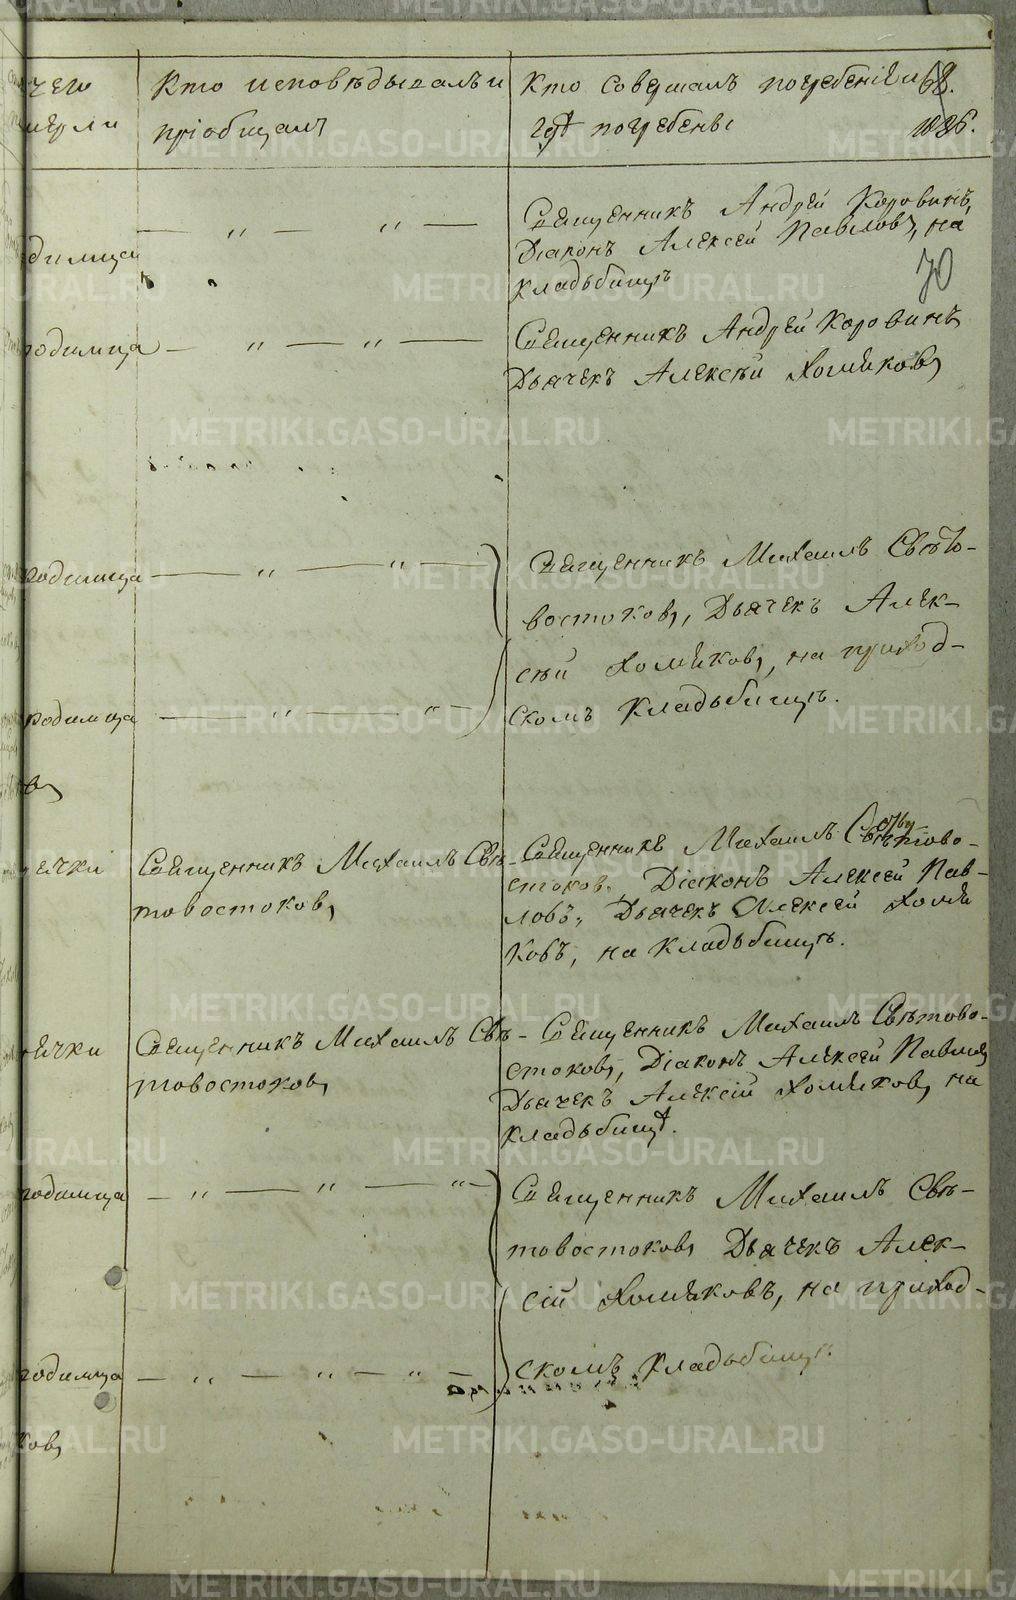 чего
умерли
Кто исповѣдывалъ и
пріобщалъ
Кто совершалъ погребеніе и
гдѣ погребены
68.
70
димца
Священникъ Андрей Коровинъ,
Діаконъ Алексей Павловъ, на
кладьбищѣ
родимца
Священникъ Андрей Коровинъ
Дьячекъ Алексѣй Хомяковъ
родимца
Священникъ Михаилъ Свѣто-
востоковъ, Дьячекъ Алек-
сѣй Хомяковъ, на приход-
скомъ кладьбищѣ.
родимца
въ
ечки
Священникъ Михаилъ Свѣ-
товостоковъ
Священникъ Михаилъ Свѣтово-
стоковъ, Діаконъ Алексей Пав-
ловъ, Дьячекъ Алексей Хомя
ковъ, на кладьбищѣ.
ечки
Священникъ Михаилъ Свѣ-
товостоковъ
Священникъ Михаилъ Свѣтово-
стоковъ, Діаконъ Алексей Павловъ
Дьячекъ Алексій Хомяковъ на
кладьбищѣ.
родимца
Священникъ Михаилъ Свѣ-
товостоковъ Дьячекъ Алек-
сій Хомяковъ, на приход-
скомъ кладьбищѣ.
родимца
ковъ
METRIKI.GASO-URAL.RU